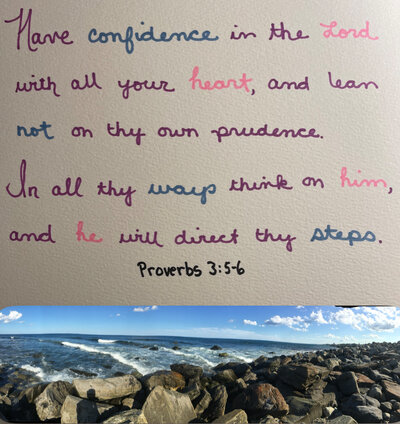 Have confidence in the Lord
with all your heart, and lean
not on thy own prudence.
In all thy ways think on him,
and he will direct thy steps.
Proverbs 3:5-6